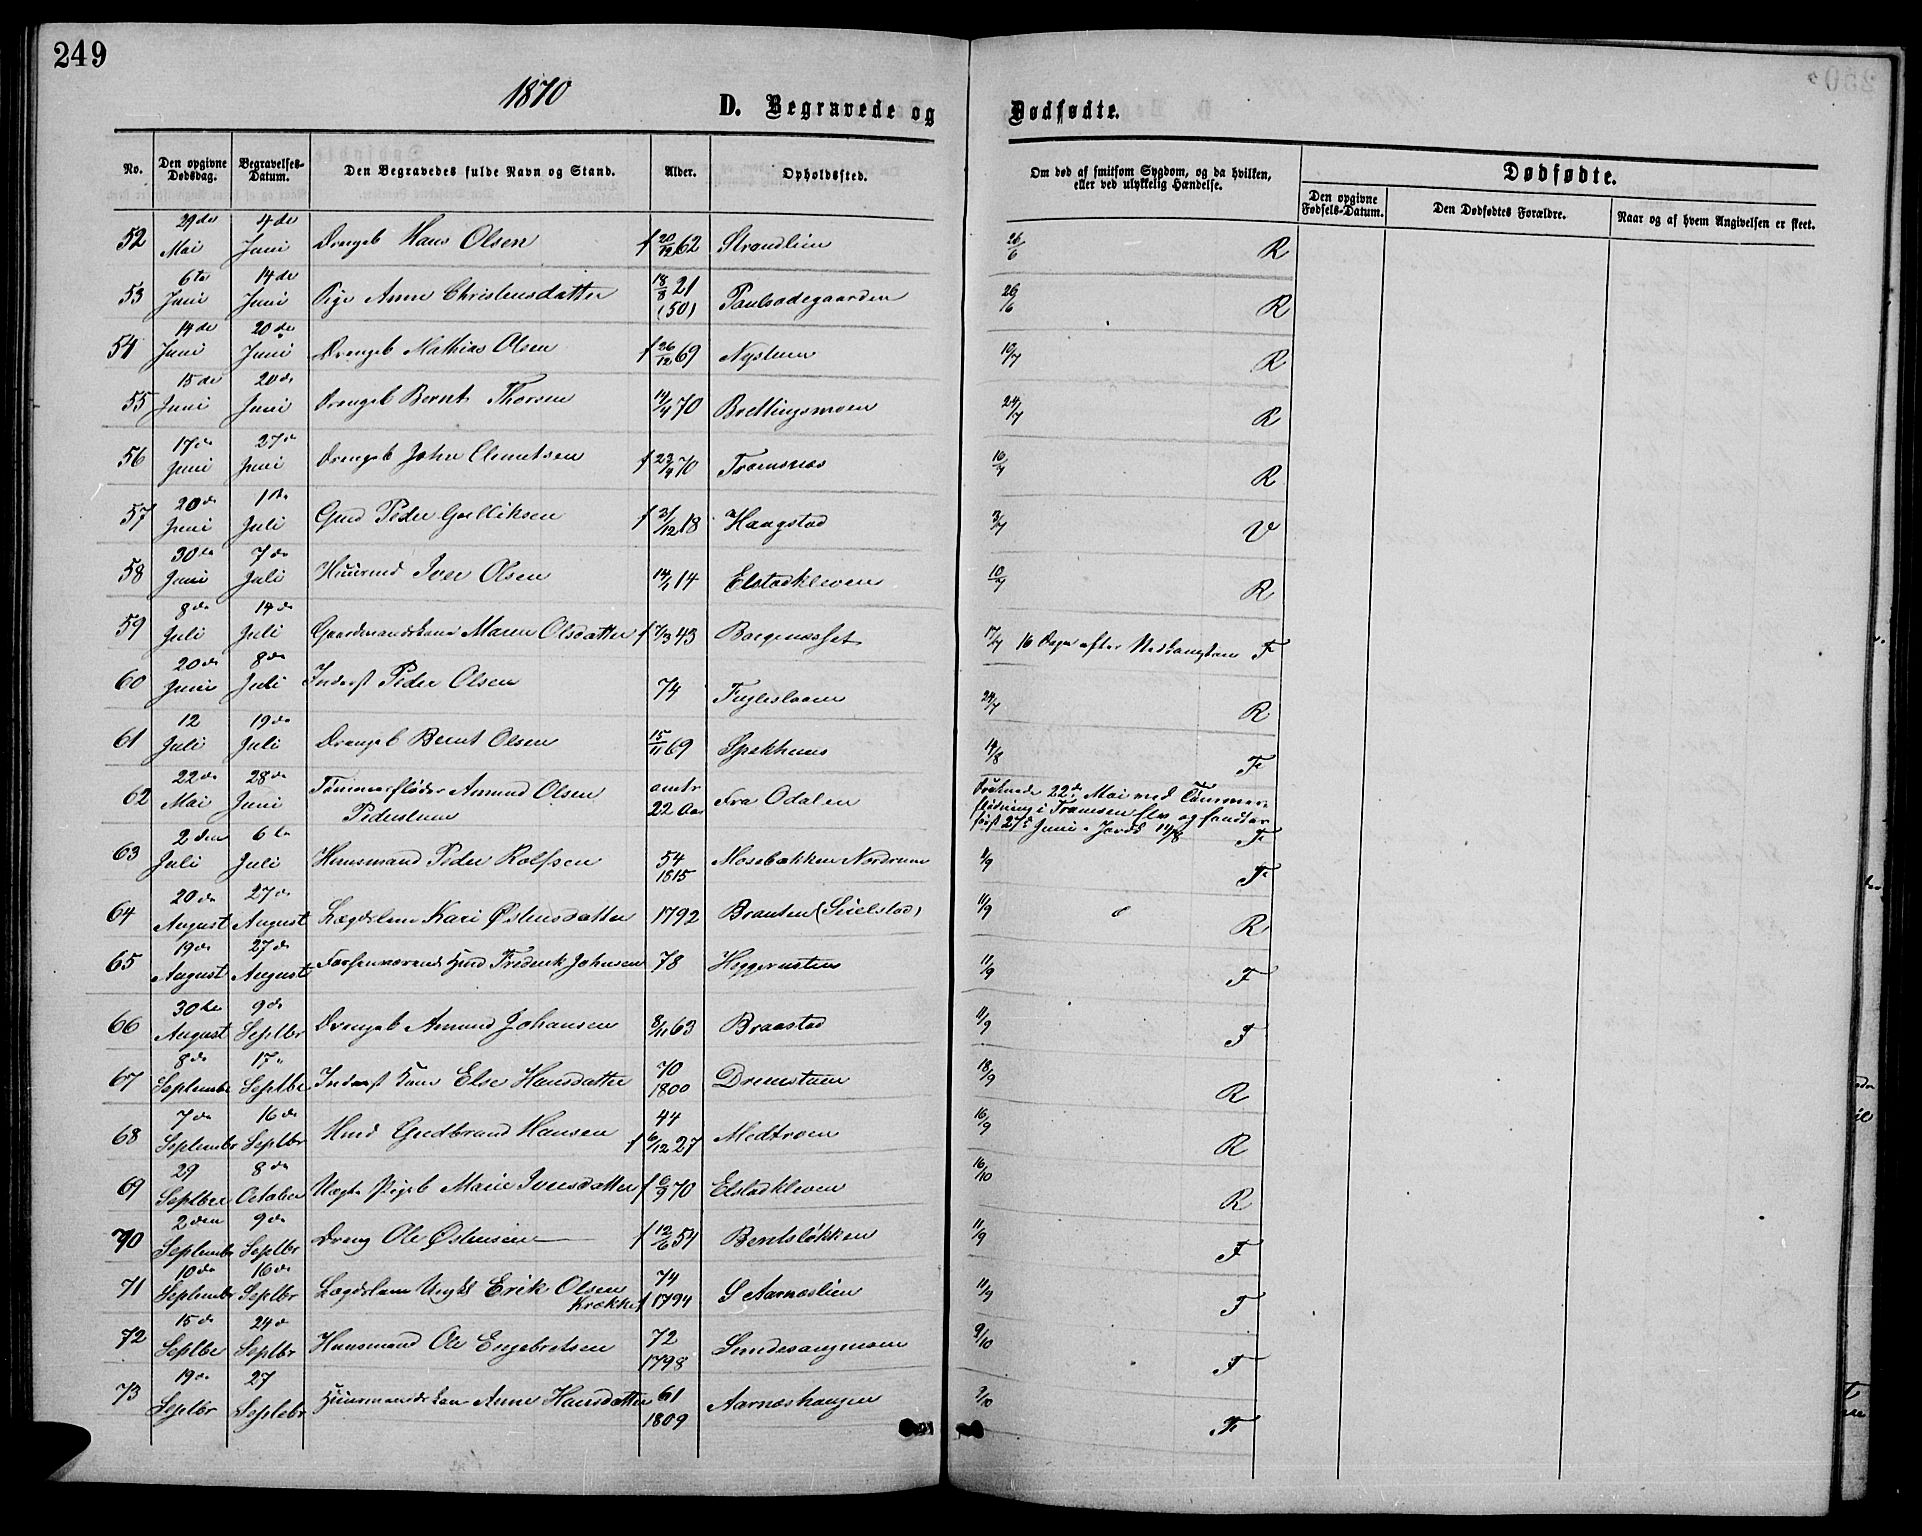 249
1870
D. Begravede og Dødfødte.
No. Den opgivne Dødsdag. Begravelses-Datum. Den Begravedes fulde Navn og Stand. Alder. Opholdssted. Om død af smitsom Sygdom, og da hvilken, eller ved ulykkelig Hændelse. Dødfødte.
Den opgivne Fødsels-Datum. Den Dødfødtes Forældre. Naar og af hvem Angivelsen er skeet.
52 29de Mai 4de Juni Drengeb Hans Olsen f 20/12 62 Strandlien 26/6 R
53 6te Juni 14de Juni Pige Anne Christensdatter 18/8 21 (50) Paulsødegaarden 26/6 R
54 14de Juni 20de Juni Drengeb Mathias Olsen f 26/12 69 Nystuen 10/7 R
55 15de Juni 20de Juni Drengeb Bernt Thorsen 14/4 70 Brettingsmoen 24/7 R
56 17de Juni 27de Juni Drengeb John Clemetsen f 22/4 70 Tromsnæs 10/7 R
57 20de Juni 1ste Juli Gmd Peder Gulliksen f 3/12 18 Haugstad 3/7 V
58 30te Juni 7de Juli Huusmd Iver Olsen 14/1 14 Elstadkleven 10/7 R
59 8de Juli 14de Juli Gaardmandskone Maren Olsdatter f 7/3 43 Borgenæsset 17/7 16 Dage efter Nedkomsten F
60 20de Juni 8de Juli Inderst Peder Olsen 74 Fugleslaaen 24/7 R
61 12 Juli 19de Juli Drengeb Bernt Olsen 15/11 69 Spekhuus 14/8 F
62 22de Mai 28de Juni Tømmerfløder Amund Olsen omtr 22 Aar Fra Odalen Druknede 22de Mai med Tømmer-
Pederstuen flødning i Tromsen Elv og fandtes
først 27de Juni. Jordf. 14/8 F
63 2den Juli 6te Juli Huusmand Peder Rolfsen 54 1815 Mosebækken Nordrum 4/9 F
64 20de August 27de August Lægdslem Kari Østensdatter 1792 Brauten (Seielstad) 11/9 R
65 19de August 27de August Forhenværende Hmd Frederik Johnsen 78 Heggerusten 11/9 F
66 30te August 9de Septbr Drengeb Amund Johansen 8/11 63 Braastad 11/9 F
67 8de Septembr 17de Septbr Inderst Kone Else Hansdatter 70 1800 Dremstuen 18/9 R
68 7de Septembr 16de Septbr Hmd Gudbrand Hansen 44 f 6/12 27 Medtroen 16/9 R
69 29 Septbr 8de October Uægte Pigeb Marie Iversdatter f 6/9 70 Elstadkleven 16/10 R
70 2den Septembr 9de Septbr Dreng Ole Østensen f 12/6 54 Berntsløkken 11/9 F
71 10de Septembr 16de Septbr Lægdslem Ungk Erik Olsen 74 f 1794 S Aarnæslien 11/9 F
Krække
72 15de Septbr 24de Septbr Huusmand Ole Engebretsen 72 1798 Sundesaugmoen 9/10 F
73 19de Septbr 27 Septebr Huusmandskone Anne Hansdatter 61 1809 Aarnæshaugen 2/10 F